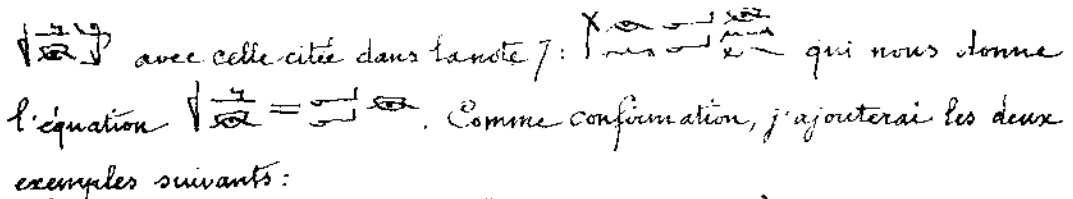 avec celle citée dans la note 7: qui nous donne
l'équation = . Comme confirmation, j'ajouterai les deux
exemples suivants: